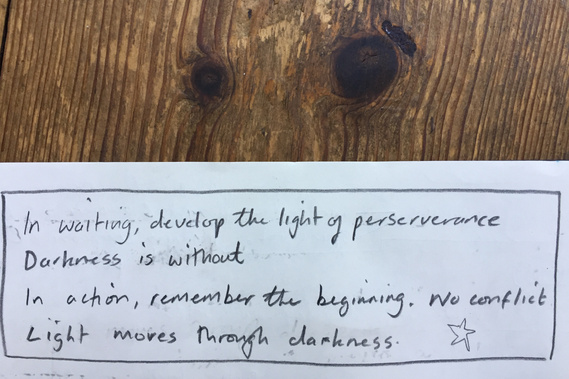 In waiting, develop the light of perserverance
Darkness is without
In action, remember the beginning. No conflict
Light moves through darkness.